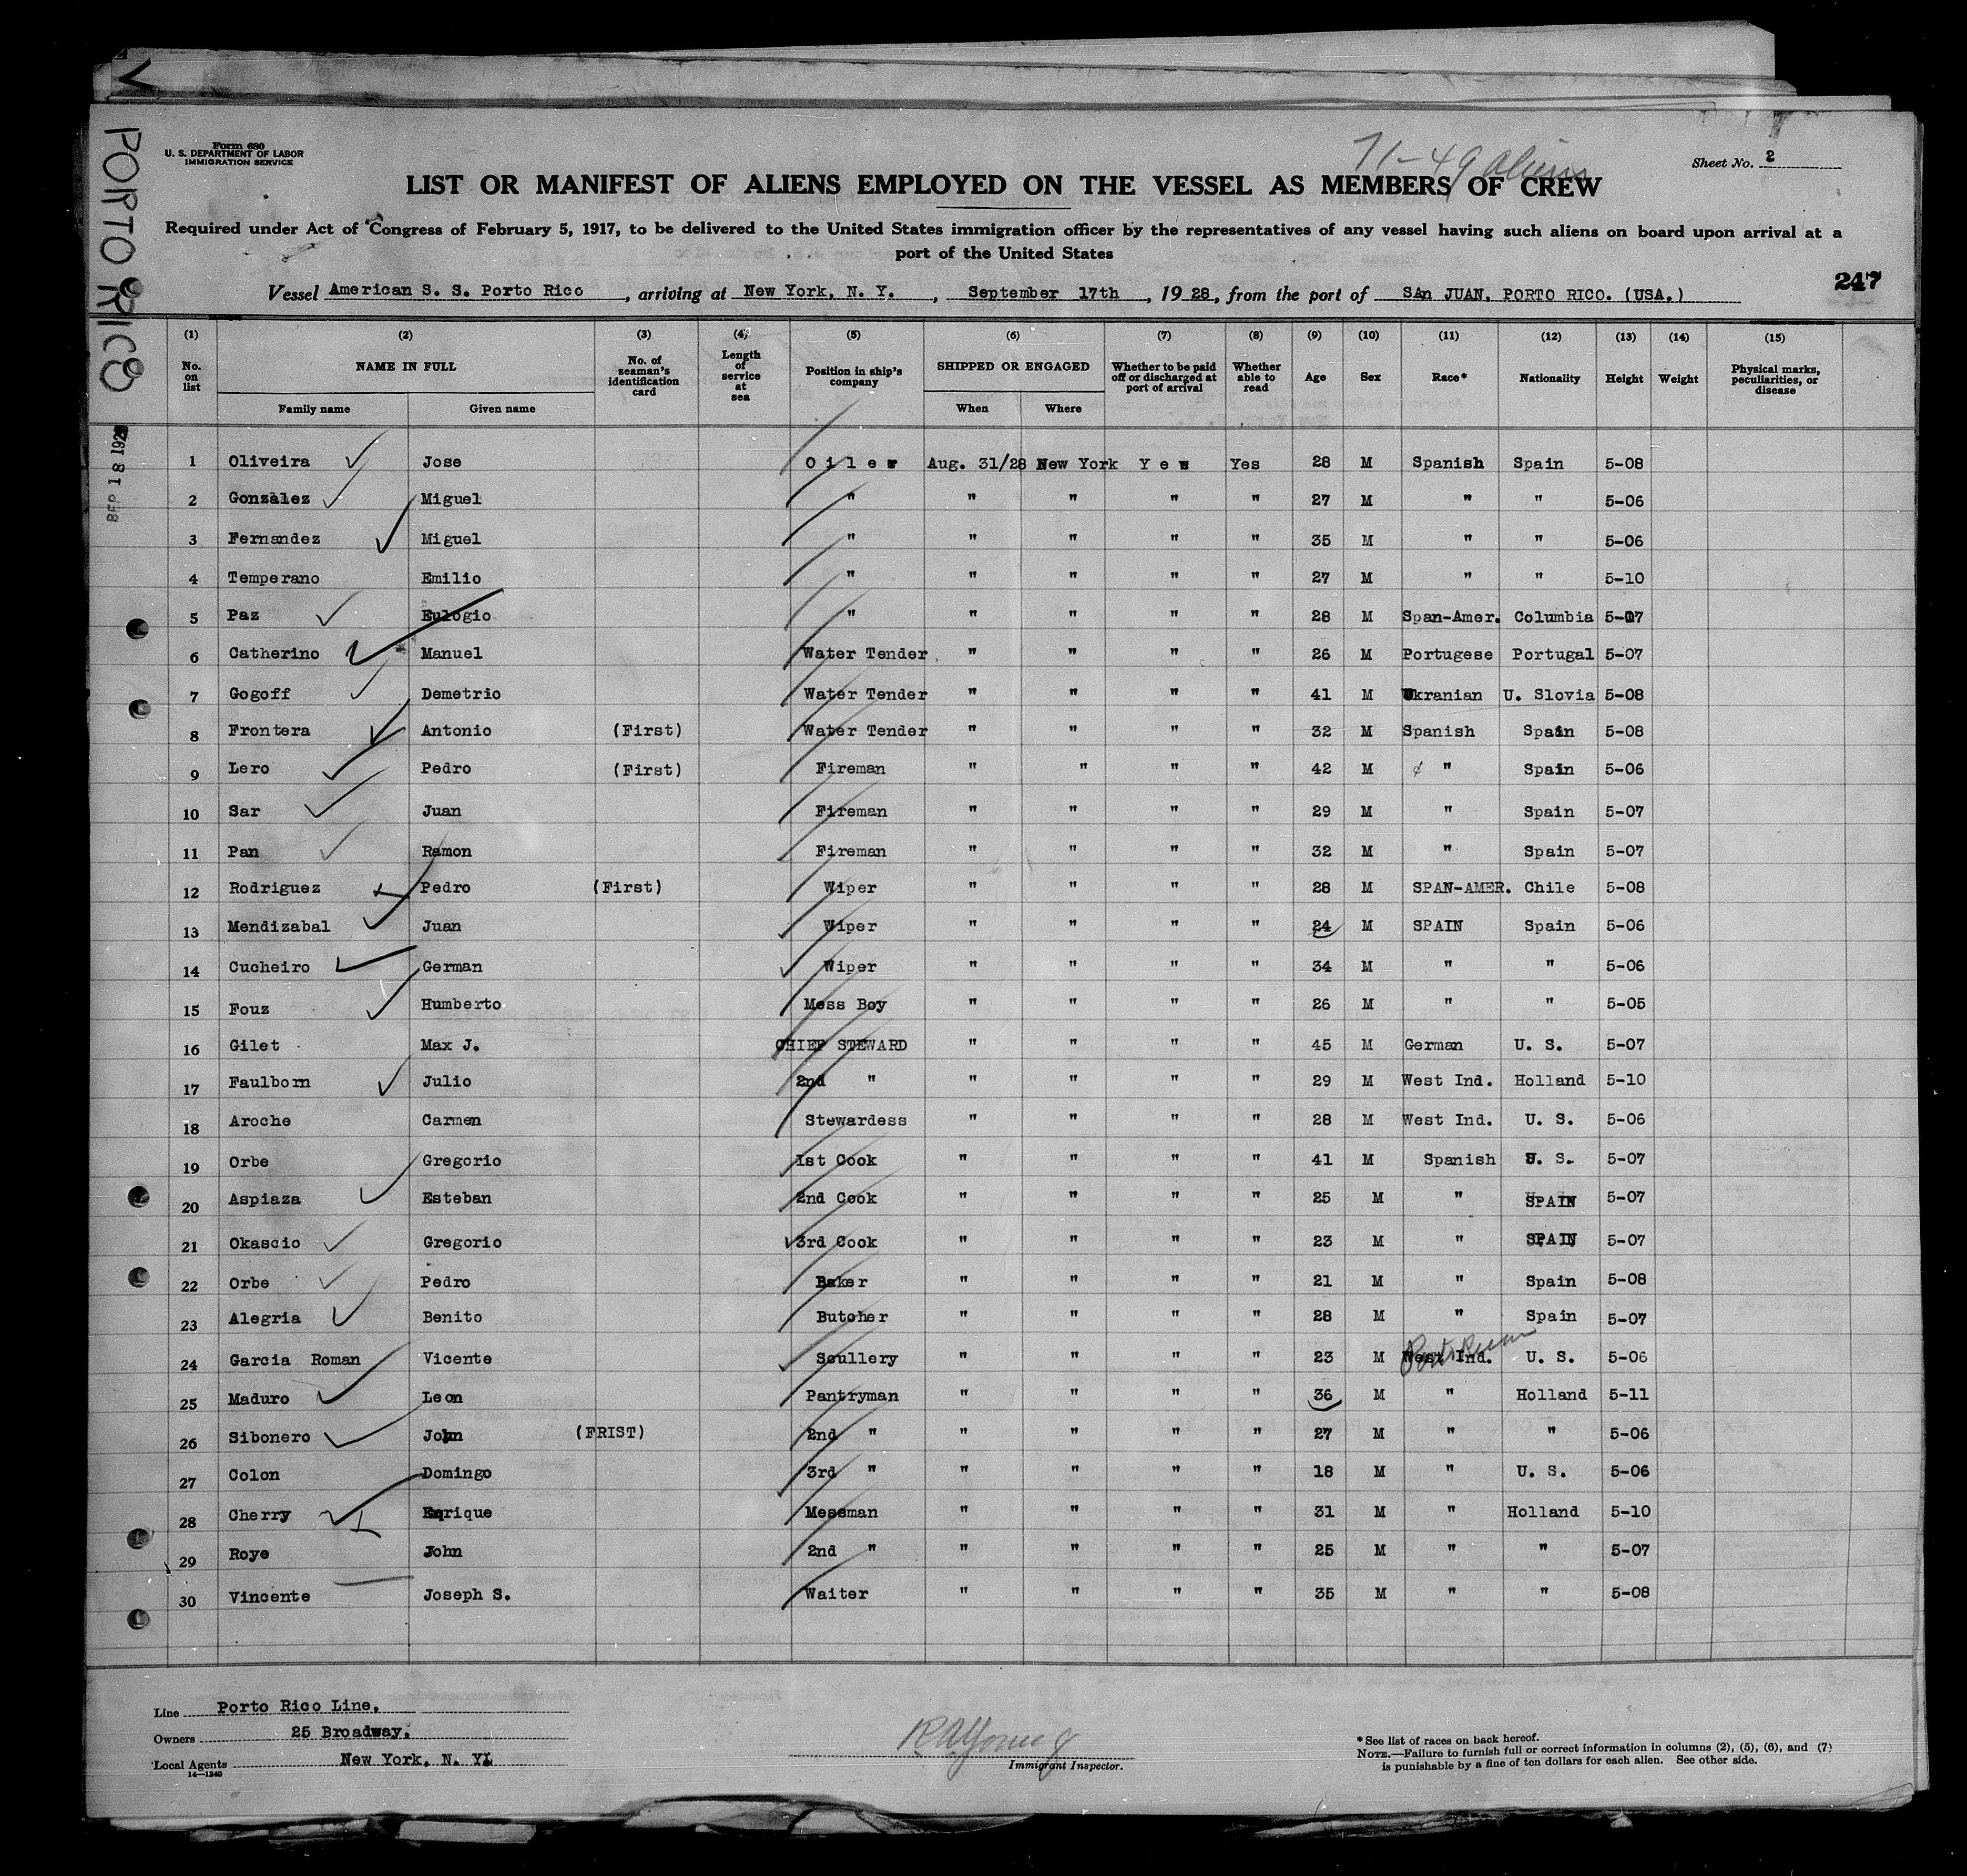 PORTO RICO
SEP 18 1928
Form 680
U. S. DEPARTMENT OF LABOR
IMMIGRATION SERVICE
71-49 aliens
Sheet No. 2
LIST OR MANIFEST OF ALIENS EMPLOYED ON THE VESSEL AS MEMBERS OF CREW
Required under Act of Congress of February 5, 1917, to be delivered to the United States immigration officer by the representatives of any vessel having such aliens on board upon arrival at a
port of the United States
Vessel American S. S. Porto Rico, arriving at New York, N. Y., September 17th, 1928, from the port of SAn JUAN, PORTO RICO. (USA.)
247
(1) (2) (3) (4) (5) (6) (7) (8) (9) (10) (11) (12) (13) (14) (15)
No. on list NAME IN FULL No. of seaman's identification card Length of service at sea Position in ship's company SHIPPED OR ENGAGED Whether to be paid off or discharged at port of arrival Whether able to read Age Sex Race* Nationality Height Weight Physical marks, peculiarities, or disease
Family name Given name When Where
1 Oliveira Jose Oiler Aug. 31/28 New York Yes Yes 28 M Spanish Spain 5-08
2 Gonzalez Miguel " " " " " 27 M " " 5-06
3 Fernandez Miguel " " " " " 35 M " " 5-06
4 Temperano Emilio " " " " " 27 M " " 5-10
5 Paz Eulogio " " " " " 28 M Span-Amer. Columbia 5-07
6 Catherino Manuel Water Tender " " " " 26 M Portugese Portugal 5-07
7 Gogoff Demetrio Water Tender " " " " 41 M Ukranian U. Slovia 5-08
8 Frontera Antonio (First) Water Tender " " " " 32 M Spanish Spain 5-08
9 Lero Pedro (First) Fireman " " " " 42 M " Spain 5-06
10 Sar Juan Fireman " " " " 29 M " Spain 5-07
11 Pan Ramon Fireman " " " " 32 M " Spain 5-07
12 Rodriguez Pedro (First) Wiper " " " " 28 M SPAN-AMER. Chile 5-08
13 Mendizabal Juan Wiper " " " " 24 M SPAIN Spain 5-06
14 Cucheiro German Wiper " " " " 34 M " " 5-06
15 Fouz Humberto Mess Boy " " " " 26 M " " 5-05
16 Gilet Max J. CHIEF STEWARD " " " " 45 M German U. S. 5-07
17 Faulborn Julio 2nd " " " " " 29 M West Ind. Holland 5-10
18 Aroche Carmen Stewardess " " " " 28 M West Ind. U. S. 5-06
19 Orbe Gregorio 1st Cook " " " " 41 M Spanish U. S. 5-07
20 Aspiaza Esteban 2nd Cook " " " " 25 M " SPAIN 5-07
21 Okascio Gregorio 3rd Cook " " " " 23 M " SPAIN 5-07
22 Orbe Pedro Baker " " " " 21 M " Spain 5-08
23 Alegria Benito Butcher " " " " 28 M " Spain 5-07
24 Garcia Roman Vicente Scullery " " " " 23 M West Ind. Porto Rican U. S. 5-06
25 Maduro Leon Pantryman " " " " 36 M " Holland 5-11
26 Sibonero John (FRIST) 2nd " " " " " 27 M " " 5-06
27 Colon Domingo 3rd " " " " " 18 M " U. S. 5-06
28 Cherry Enrique Messman " " " " 31 M " Holland 5-10
29 Roye John 2nd " " " " " 25 M " " 5-07
30 Vincente Joseph S. Waiter " " " " 35 M " " 5-08
Line Porto Rico Line,
Owners 25 Broadway,
Local Agents New York, N. Y.
14-1240
R A Young
Immigrant Inspector.
* See list of races on back hereof.
NOTE.—Failure to furnish full or correct information in columns (2), (5), (6), and (7)
is punishable by a fine of ten dollars for each alien. See other side.